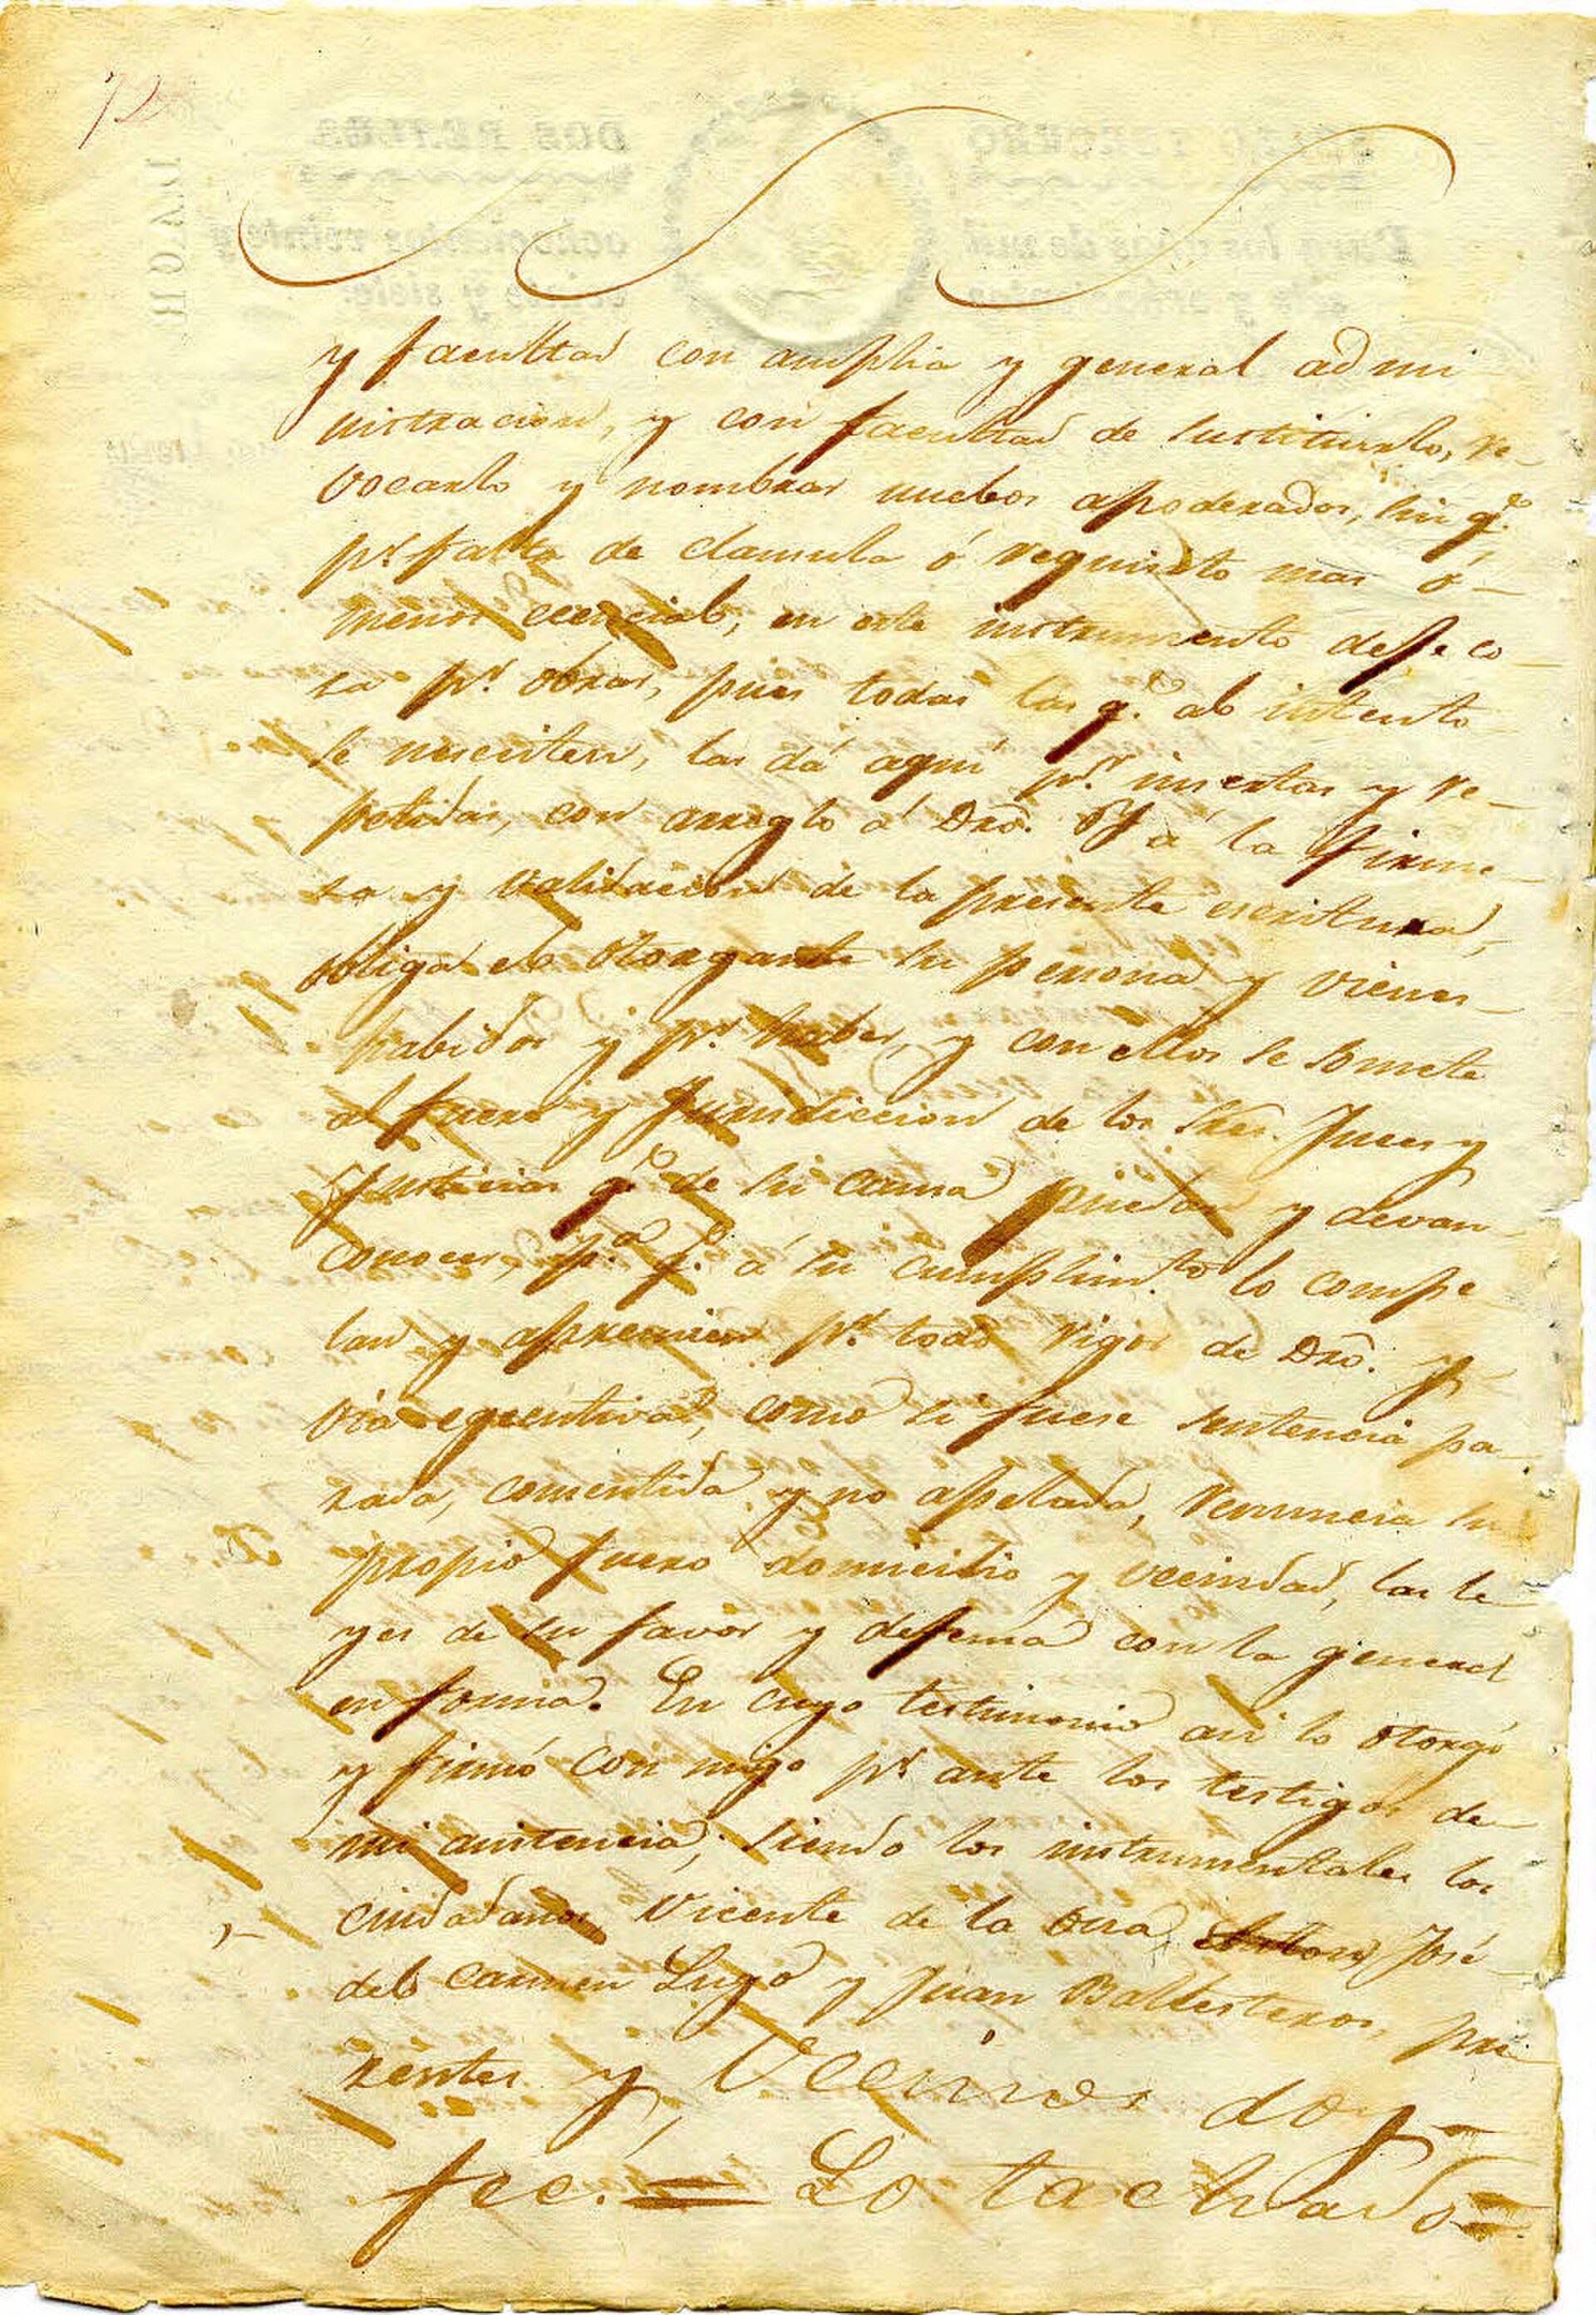 72
y facultad con amplia y general admi
nistracion, y con facultad de sustituirlo, re-
vocarlo y nombrar nuebos apoderados, sin q.e
p.r falta de clausula ó requisito mas ó-
menos ecencial, en este instrumento deje co-
sa p.r obrar, pues todas las q.e al intento
se nesciten, las dá aquí p.r insertas y re-
petidas, con arreglo á Dro. Y á la firme-
sa y validacion de la presente escritura,
obliga el otorgante su persona y vienes
habidos y p.r haber, y con ellos se somete
al fuero y Jurisdiccion de los Sres. Jueces y
Justicias q.e de su causa puedan y devan
conocer, p.a q.e á su cumplim.to lo compe
lan y apremien p.r todo rigor de Dro. y
via egecutiva, como si fuese sentencia pa-
sada, consentida y no apelada, renuncia su
propio fuero domicilio y vecindad, las le-
yes de su favor y defensa con la general
en forma. En cuyo testimonio asi lo otorgó
y firmó con migo p.r ante los testigos de-
mi asistencia, siendo los instrumentales los
ciudadanos Vicente de la Osa, José
del Carmen Lugo y Juan Ballesteros, pre-
sentes y Vecinos doy
fee. = Lo tachado =